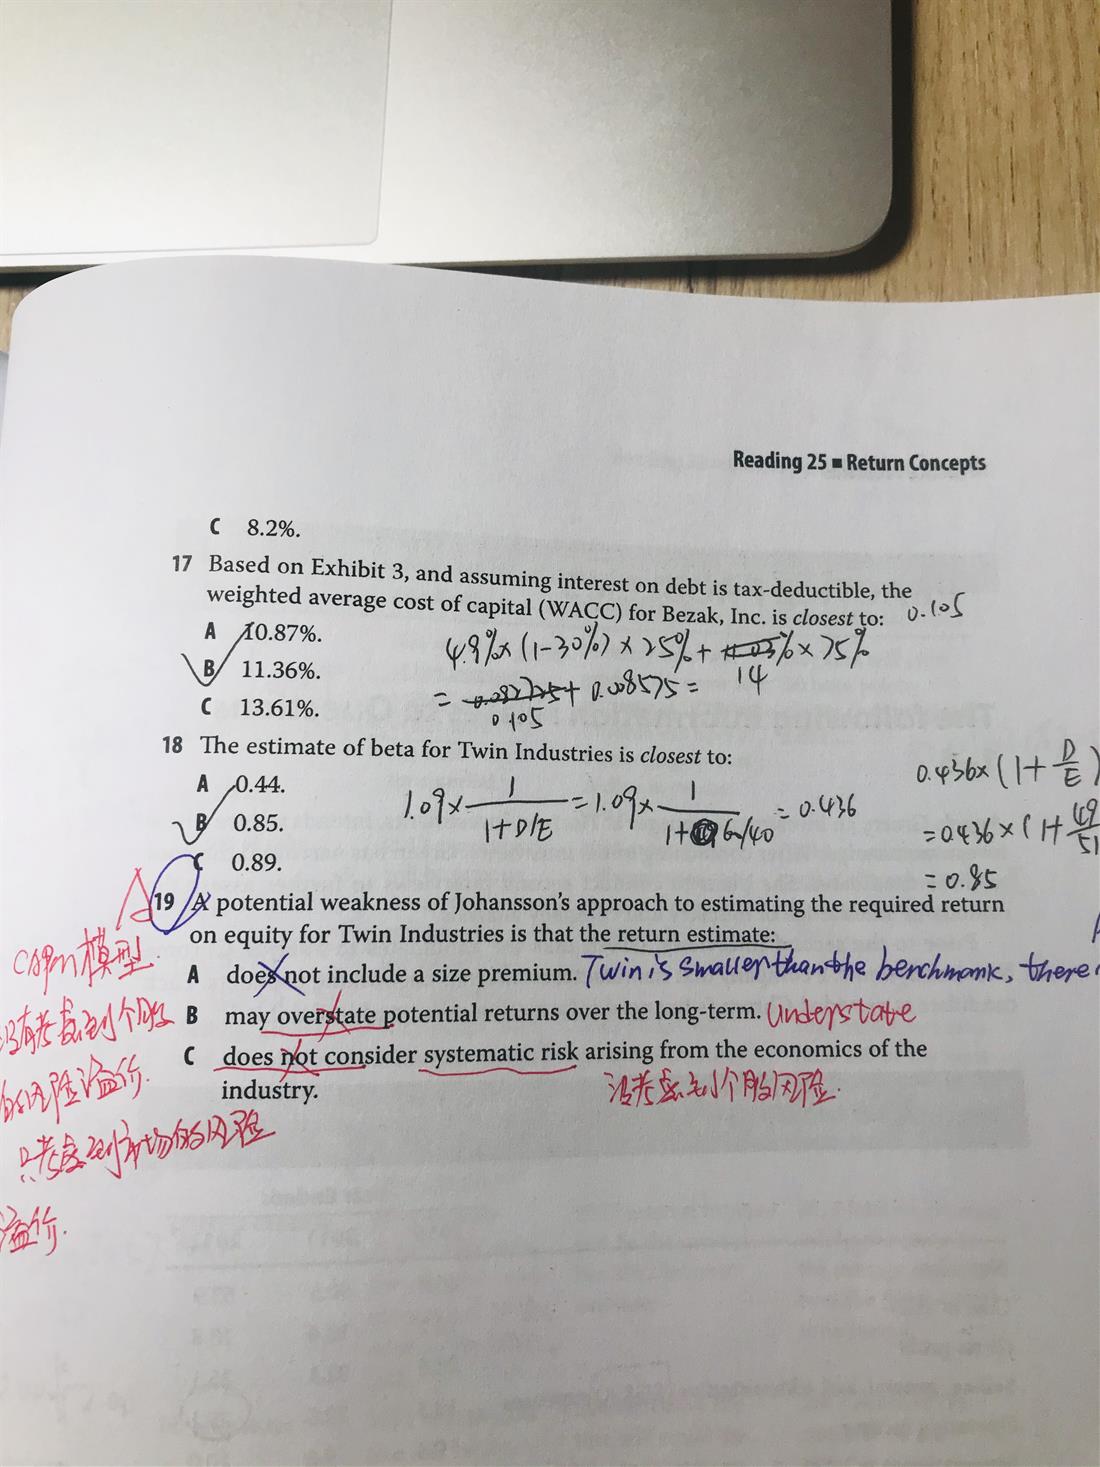 Reading 25 ■ Return Concepts
C 8.2%.
17 Based on Exhibit 3, and assuming interest on debt is tax-deductible, the
weighted average cost of capital (WACC) for Bezak, Inc. is closest to: 0.105
A 10.87%.
4.9%×(1-30%)×25%+ %×75%
14
B 11.36%.
= + 0.008575=
0.105
C 13.61%.
18 The estimate of beta for Twin Industries is closest to:
A 0.44.
1.09× 1/(1+D/E) =1.09× 1/(1+ 60/40) =0.436
0.436×(1+ D/E)
B 0.85.
=0.436×(1+ 49/51
C 0.89.
=0.85
19 A potential weakness of Johansson's approach to estimating the required return
on equity for Twin Industries is that the return estimate:
A does not include a size premium. Twin is smaller than the benchmark, there
B may overstate potential returns over the long-term. Understate
C does not consider systematic risk arising from the economics of the
industry.
没考虑到个股风险.
A
CAPM模型.
没有考虑到个股
的风险溢价.
只考虑到市场的风险
溢价.